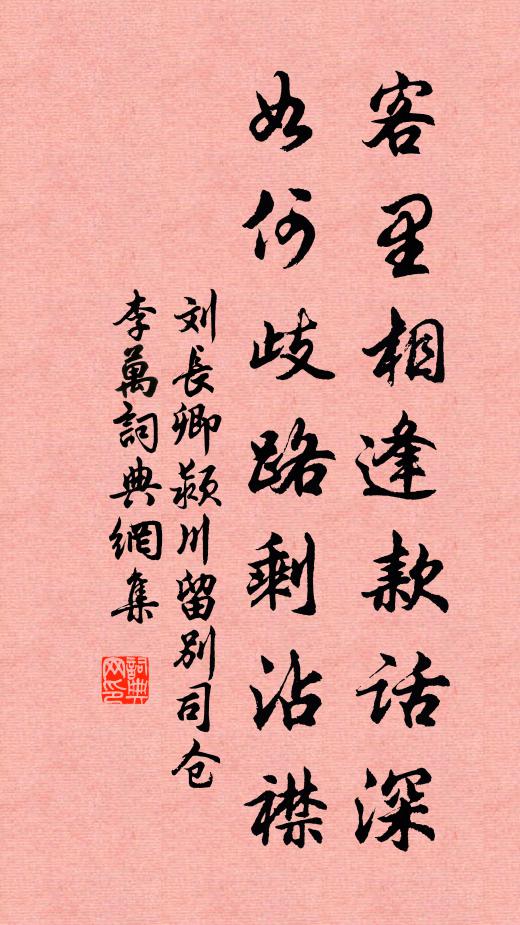 客里相逢款话深
如何歧路剩沾襟
刘長卿颍川留别司仓
李萬詞典網集
詞典网印